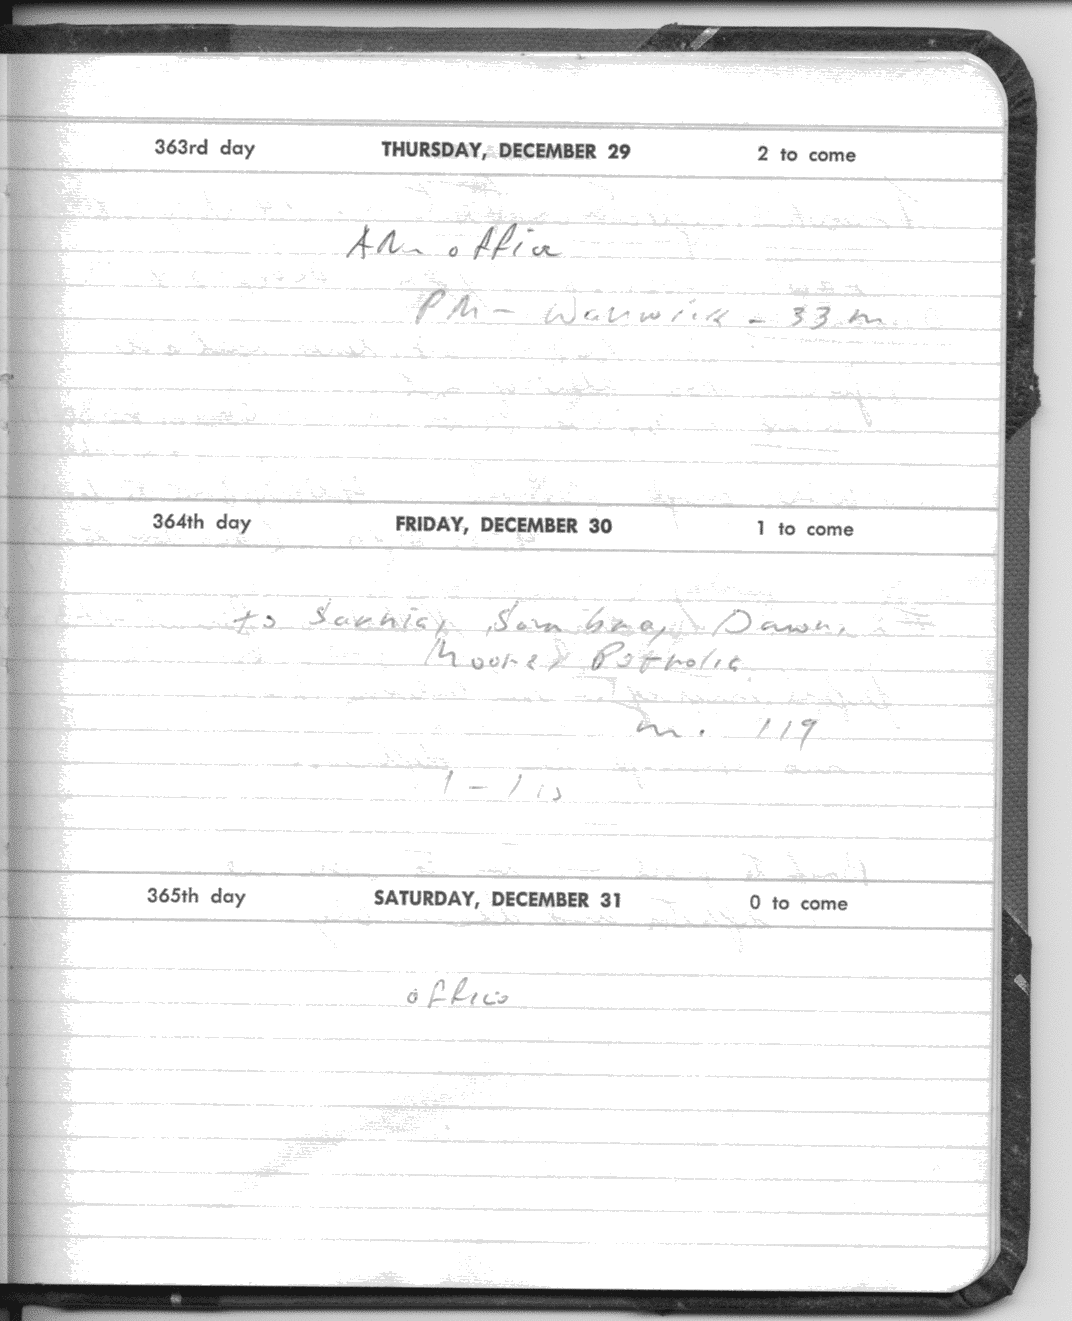 363rd day THURSDAY, DECEMBER 29 2 to come
AM office
PM - Warwick - 33 m
364th day FRIDAY, DECEMBER 30 1 to come
to Sarnia, Sombra, Dawn,
Moore, Petrolia.
m. 119
365th day SATURDAY, DECEMBER 31 0 to come
office